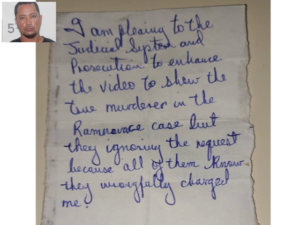 5
I am pleaing to the
Judicial System and
Prosecution to enhance
the video to show the
true murderer in the
Ramnarace case but
they ignoring the request
because all of them know
they wrongfully charged
me.